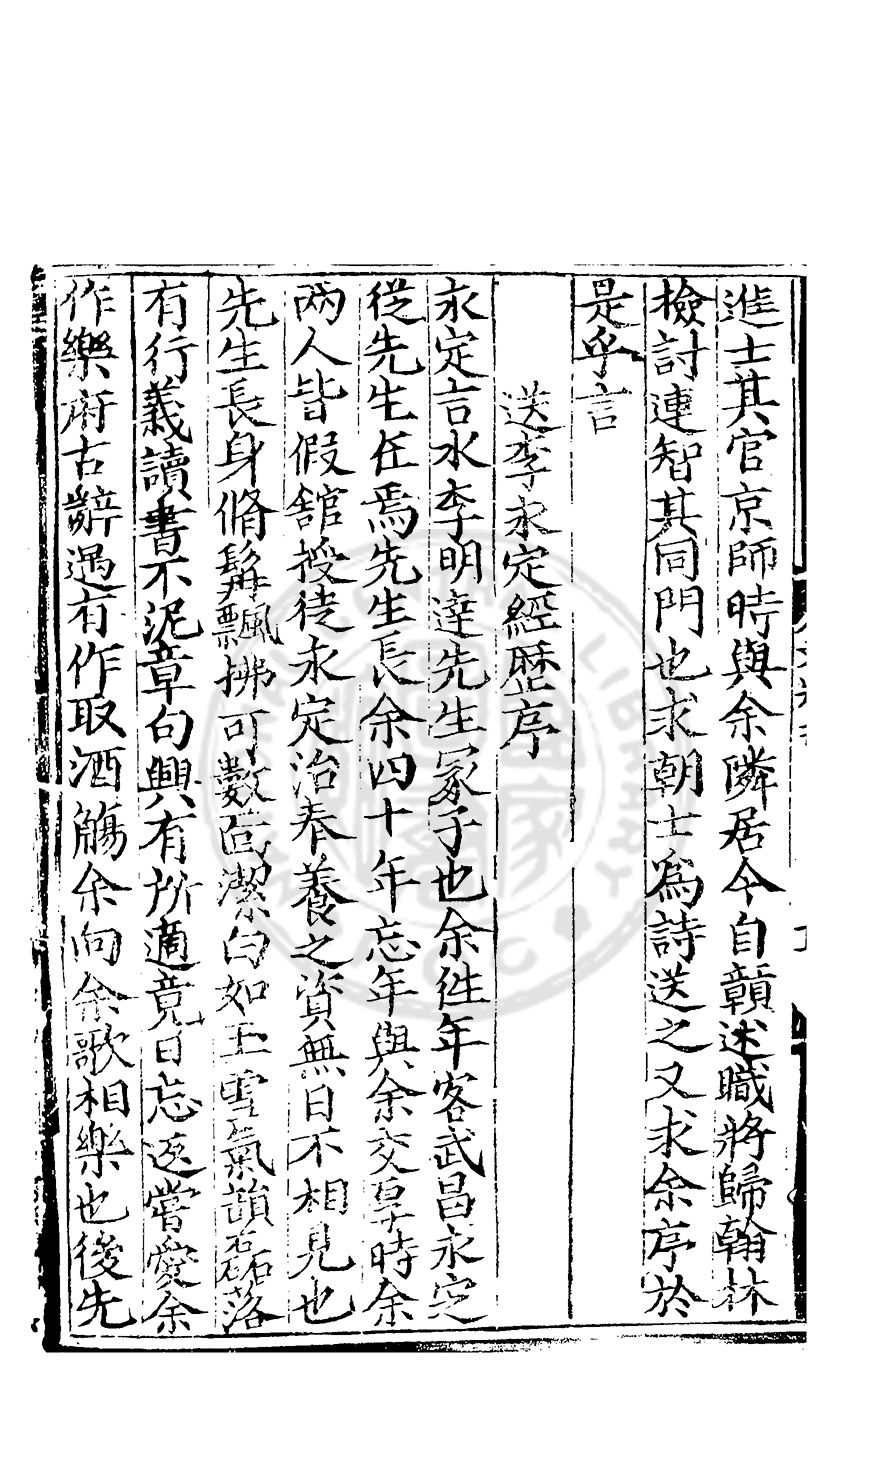 進士其官京師時與余隣居今自贛述職將歸翰林
檢討連智其同門也求朝士為詩送之又求余序於
是乎言
送李永定經歷序
永定言水李明達先生冢子也余徃年客武昌永定
從先生在焉先生長余四十年忘年與余交厚時余
兩人皆假舘授徒永定治奉養之資無日不相見也
先生長身脩髯飄拂可數而潔白如玉雪氣韻磊落
有行義讀書不泥章句興有所適竟日忘返嘗愛余
作樂府古辭遇有作取酒觴余向余歌相樂也後先
NATIONAL CENTRAL LIBRARY